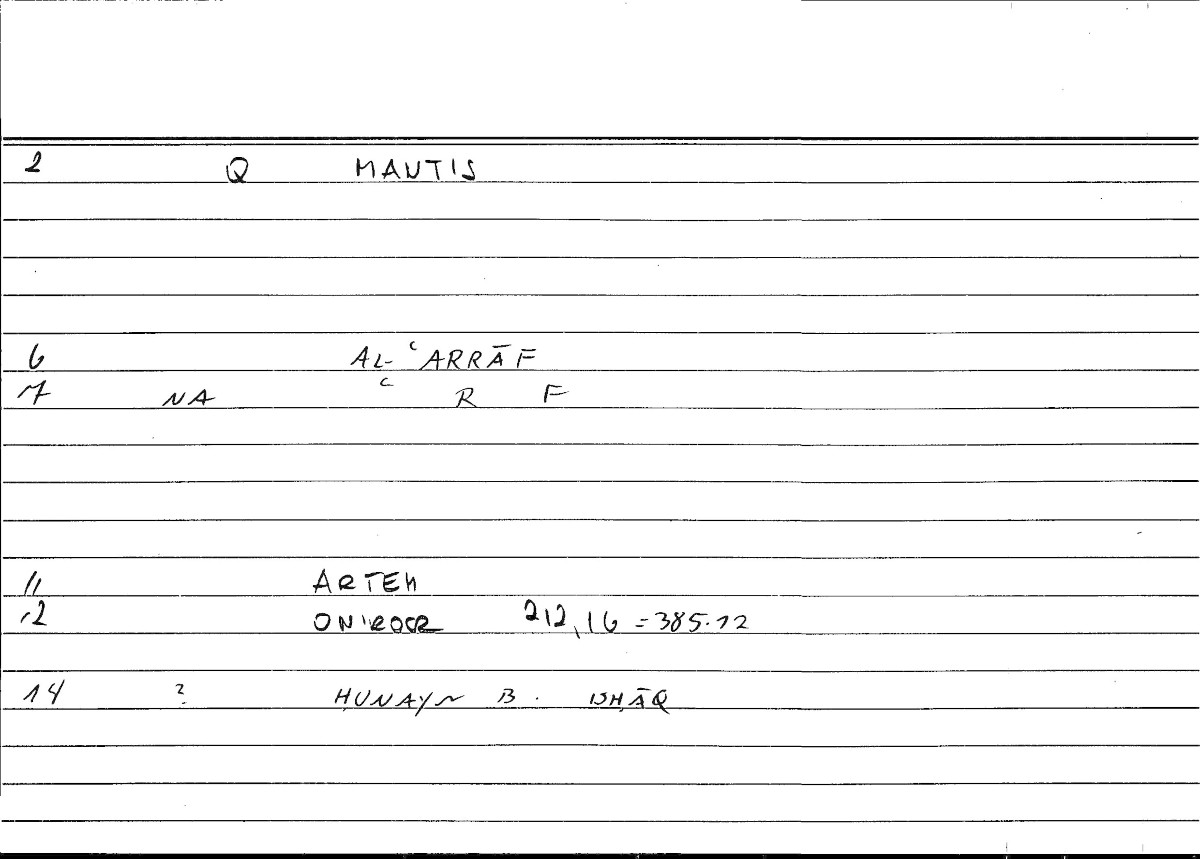 2 Q MANTIS
6 AL- ʿARRĀF
7 NA ʿ R F
11 ARTEM
12 ONIROCR 212,16 = 385.12
14 ? ḤUNAYN B. ISḤĀQ